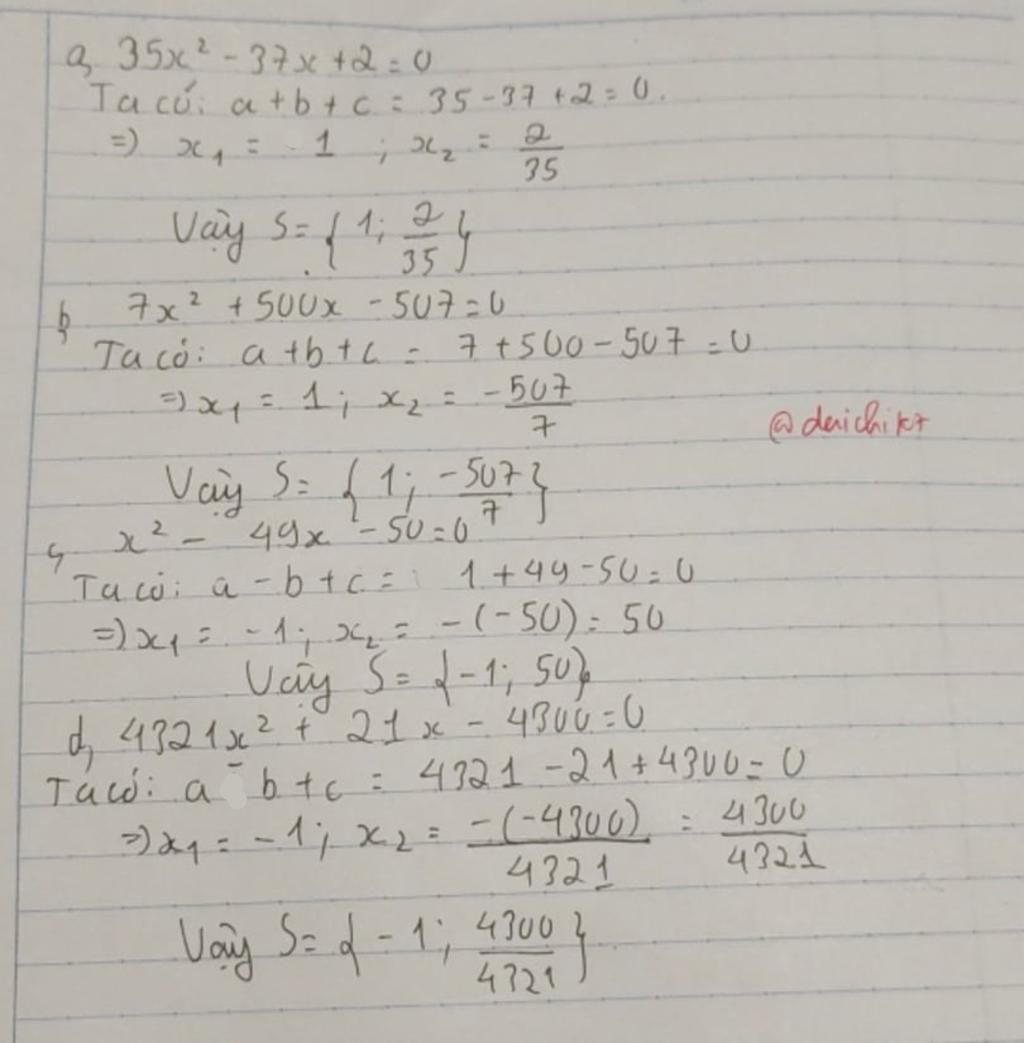 a, 35x² - 37x + 2 = 0
Ta có: a + b + c = 35 - 37 + 2 = 0.
=) x₁ = 1 ; x₂ = 2/35
Vậy S = { 1; 2/35 }
b, 7x² + 500x - 507 = 0
Ta có: a + b + c = 7 + 500 - 507 = 0
=) x₁ = 1; x₂ = -507/7
@daichik7
Vậy S = { 1; -507/7 }
c, x² - 49x - 50 = 0
Ta có: a - b + c = 1 + 49 - 50 = 0
=) x₁ = -1; x₂ = -(-50) = 50
Vậy S = {-1; 50}
d, 4321x² + 21x - 4300 = 0
Ta có: a - b + c = 4321 - 21 + 4300 = 0
=) x₁ = -1; x₂ = -(-4300)/4321 = 4300/4321
Vậy S = { -1; 4300/4321 }